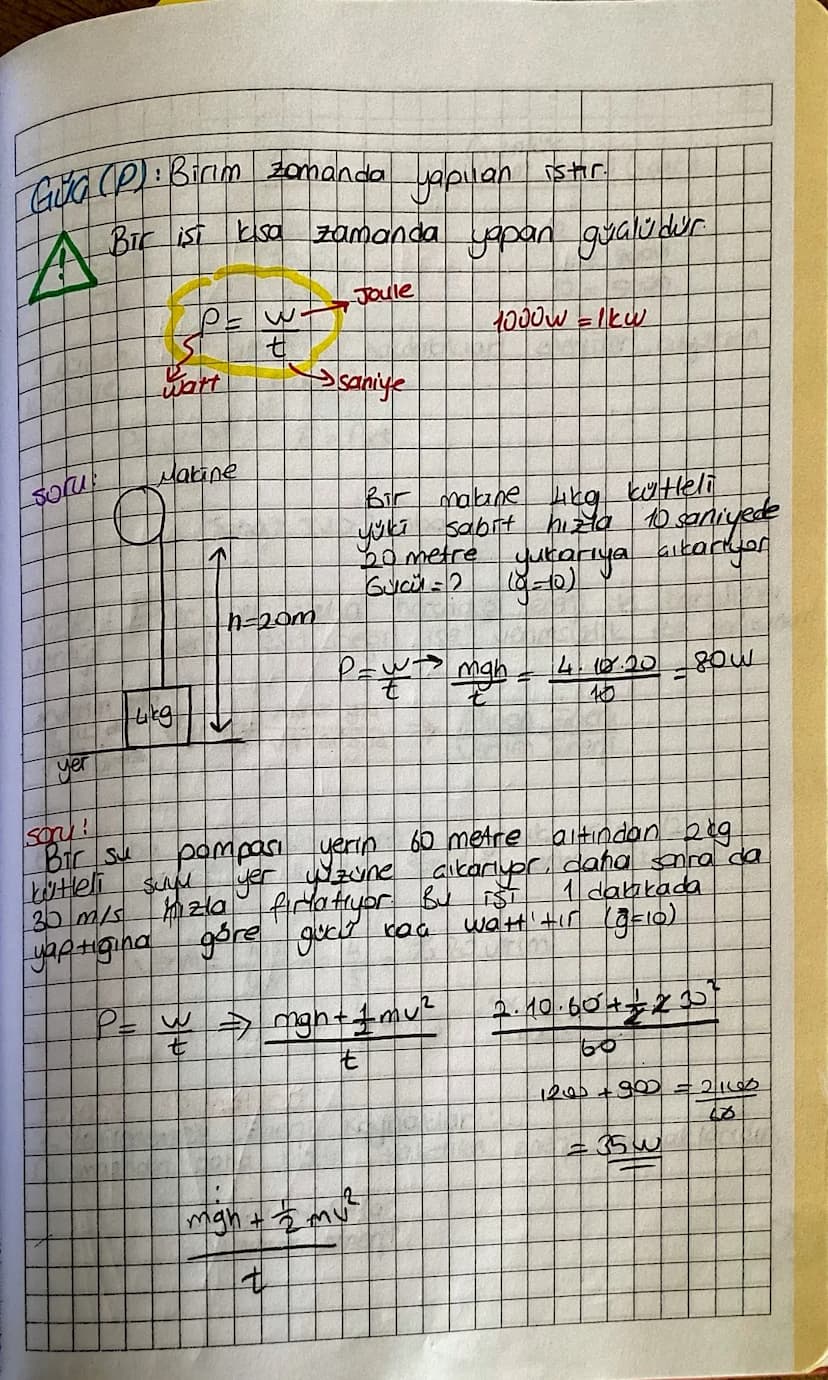 Güç (P): Birim zamanda yapılan iştir.
! Bir işi kısa zamanda yapan güçlüdür.
P = w/t
Joule
Watt
saniye
1000W = 1kW
soru:
Makine
h=20m
4kg
yer
Bir makine 4kg kütleli
yükü sabit hızla 10 saniyede
20 metre yukarıya çıkarıyor
Gücü=? (g=10)
P = w/t → mgh/t = 4.10.20/10 = 80W
soru!
Bir su pompası yerin 60 metre altından 2kg
kütleli suyu yer yüzüne çıkarıyor, daha sonra da
30 m/s hızla fırlatıyor. Bu işi 1 dakikada
yaptığına göre gücü kaç watt'tır (g=10)
P = w/t ⇒ (mgh + 1/2 mv²)/t
(2.10.60 + 1/2 2 30²)/60
1200 + 900 = 2100/60
= 35W
(mgh + 1/2 mv²)/t